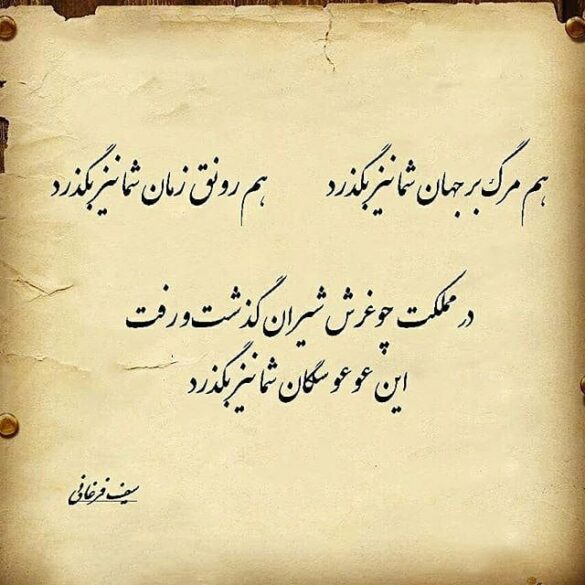 هم مرگ بر جهان شما نیز بگذرد هم رونق زمان شما نیز بگذرد
در مملکت چو غرش شیران گذشت و رفت
این عوعو سگان شما نیز بگذرد
سیف فرغانی